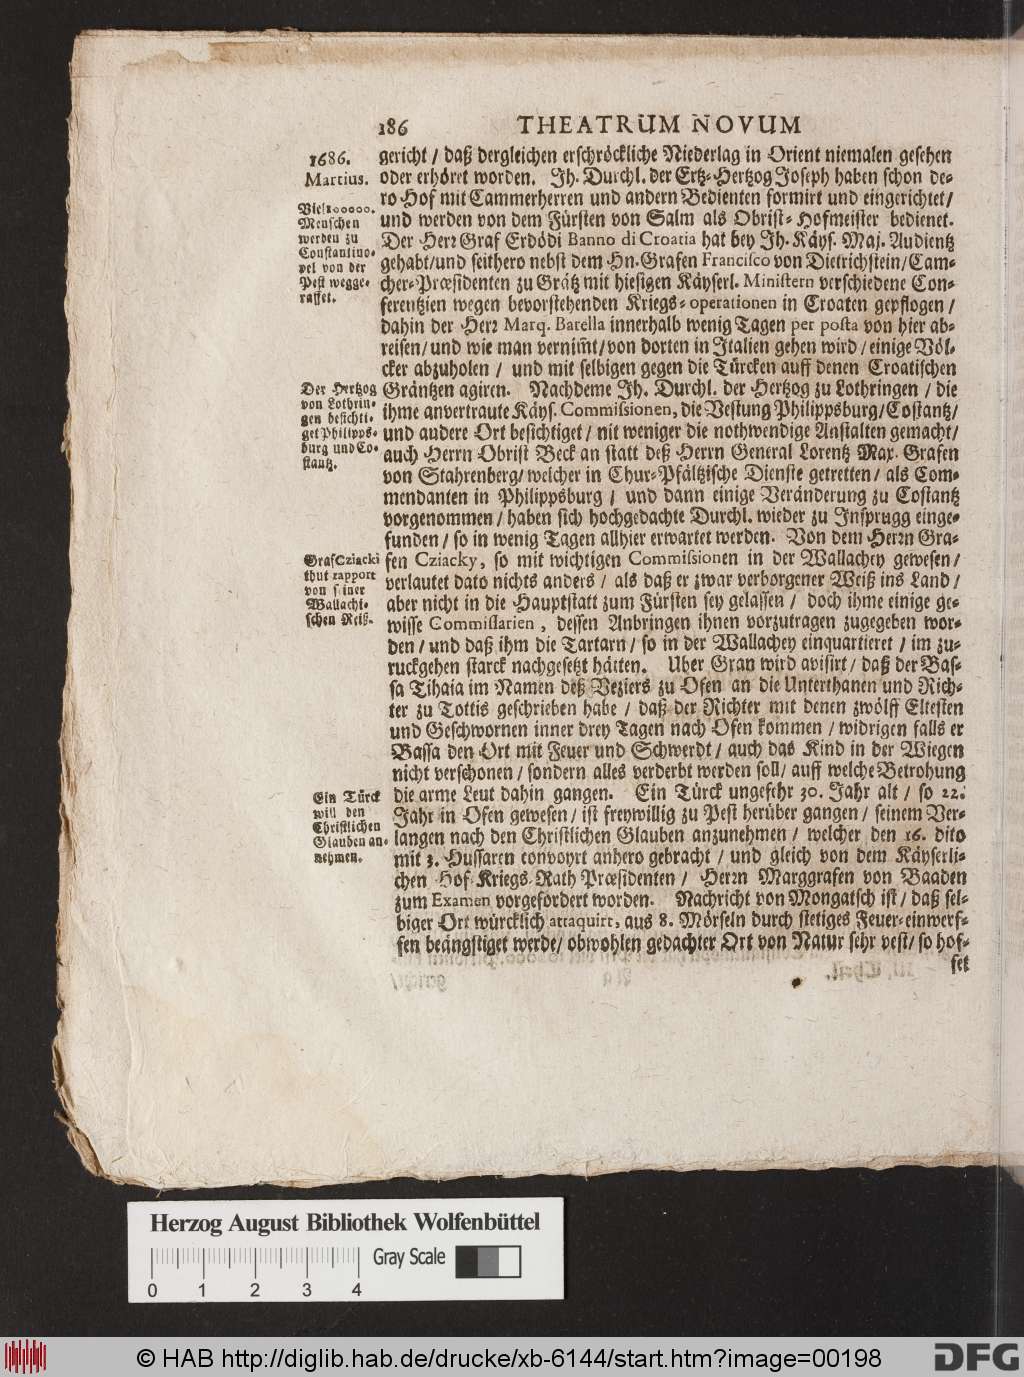 186 THEATRUM NOVUM
1686.
Martius.
Viel 100000.
Menschen
werden zu
Constantino-
pel von der
Pest wegge-
raffet.
gericht / daß dergleichen erschröckliche Niederlag in Orient niemalen gesehen
oder erhöret worden. Jh. Durchl. der Ertz-Hertzog Joseph haben schon de-
ro Hof mit Cammerherren und andern Bedienten formirt und eingerichtet /
und werden von dem Fürsten von Salm als Obrist-Hofmeister bedienet.
Der Herr Graf Erdödi Banno di Croatia hat bey Jh. Käys. Maj. Audientz
gehabt / und seithero nebst dem Hn. Grafen Francisco von Dietrichstein / Cam-
cher-Præsidenten zu Grätz mit hiesigen Käyserl. Ministern verschiedene Con-
ferentzien wegen bevorstehenden Kriegs-operationen in Croaten gepflogen /
dahin der Herr Marq. Barella innerhalb wenig Tagen per posta von hier ab-
reisen / und wie man vernim̃t / von dorten in Italien gehen wird / einige Völ-
cker abzuholen / und mit selbigen gegen die Türcken auff denen Croatischen
Der Hertzog
von Lothrin-
gen besichti-
get Philipps-
burg und Co-
stantz.
Gräntzen agiren. Nachdeme Jh. Durchl. der Hertzog zu Lothringen / die
ihme anvertraute Käys. Commissionen, die Vestung Philippsburg / Costantz /
und andere Ort besichtiget / nit weniger die nothwendige Anstalten gemacht /
auch Herrn Obrist Beck an statt deß Herrn General Lorentz Max. Grafen
von Stahrenberg / welcher in Chur-Pfältzische Dienste getretten / als Com-
mendanten in Philippsburg / und dann einige Veränderung zu Costantz
vorgenommen / haben sich hochgedachte Durchl. wieder zu Insprugg einge-
funden / so in wenig Tagen allhier erwartet werden. Von dem Herrn Gra-
Graf Cziacki
thut rapport
von seiner
Wallachi-
schen Reiß.
fen Cziacky, so mit wichtigen Commissionen in der Wallachey gewesen /
verlautet dato nichts anders / als daß er zwar verborgener Weiß ins Land /
aber nicht in die Hauptstatt zum Fürsten sey gelassen / doch ihme einige ge-
wisse Commissarien, dessen Anbringen ihnen vorzutragen zugegeben wor-
den / und daß ihm die Tartarn / so in der Wallachey einquartieret / im zu-
ruckgehen starck nachgesetzt hätten. Uber Gran wird avisirt / daß der Bas-
sa Tihaia im Namen deß Veziers zu Ofen an die Unterthanen und Rich-
ter zu Tottis geschrieben habe / daß der Richter mit denen zwölff Eltesten
und Geschwornen inner drey Tagen nach Ofen kommen / widrigen falls er
Bassa den Ort mit Feuer und Schwerdt / auch das Kind in der Wiegen
nicht verschonen / sondern alles verderbt werden soll / auff welche Betrohung
Ein Türck
will den
Christlichen
Glauben an-
nehmen.
die arme Leut dahin gangen. Ein Türck ungefehr 30. Jahr alt / so 22.
Jahr in Ofen gewesen / ist freywillig zu Pest herüber gangen / seinem Ver-
langen nach den Christlichen Glauben anzunehmen / welcher den 16. dito
mit 3. Hussaren convoyrt anhero gebracht / und gleich von dem Käyserli-
chen Hof-Kriegs-Rath Præsidenten / Herrn Marggrafen von Baaden
zum Examen vorgefordert worden. Nachricht von Mongatsch ist / daß sel-
biger Ort würcklich attaquirt, aus 8. Mörseln durch stetiges Feuer-einwerf-
fen beängstiget werde / obwohlen gedachter Ort von Natur sehr vest / so hof-
fet
Herzog August Bibliothek Wolfenbüttel
Gray Scale
0 1 2 3 4
© HAB http://diglib.hab.de/drucke/xb-6144/start.htm?image=00198
DFG